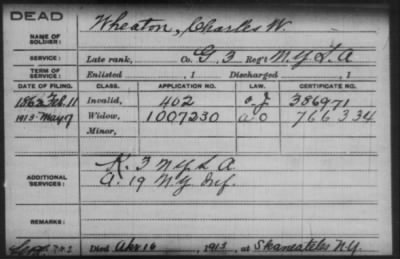 DEAD
NAME OF SOLDIER: Wheaton, Charles W.
SERVICE: Late rank, Co. G. 3 Reg't N.Y. L. A
TERM OF SERVICE: Enlisted , 1 Discharged , 1
DATE OF FILING. CLASS. APPLICATION NO. LAW. CERTIFICATE NO.
Feb. 11 Invalid, 402 386971
1913 May 7 Widow, 1007230 766334
Minor,
ADDITIONAL SERVICES: K. 3 N.Y. L. A.
A. 19 N.Y. Inf.
REMARKS:
Died Apr 16 , 1913, at Skaneateles N.Y.